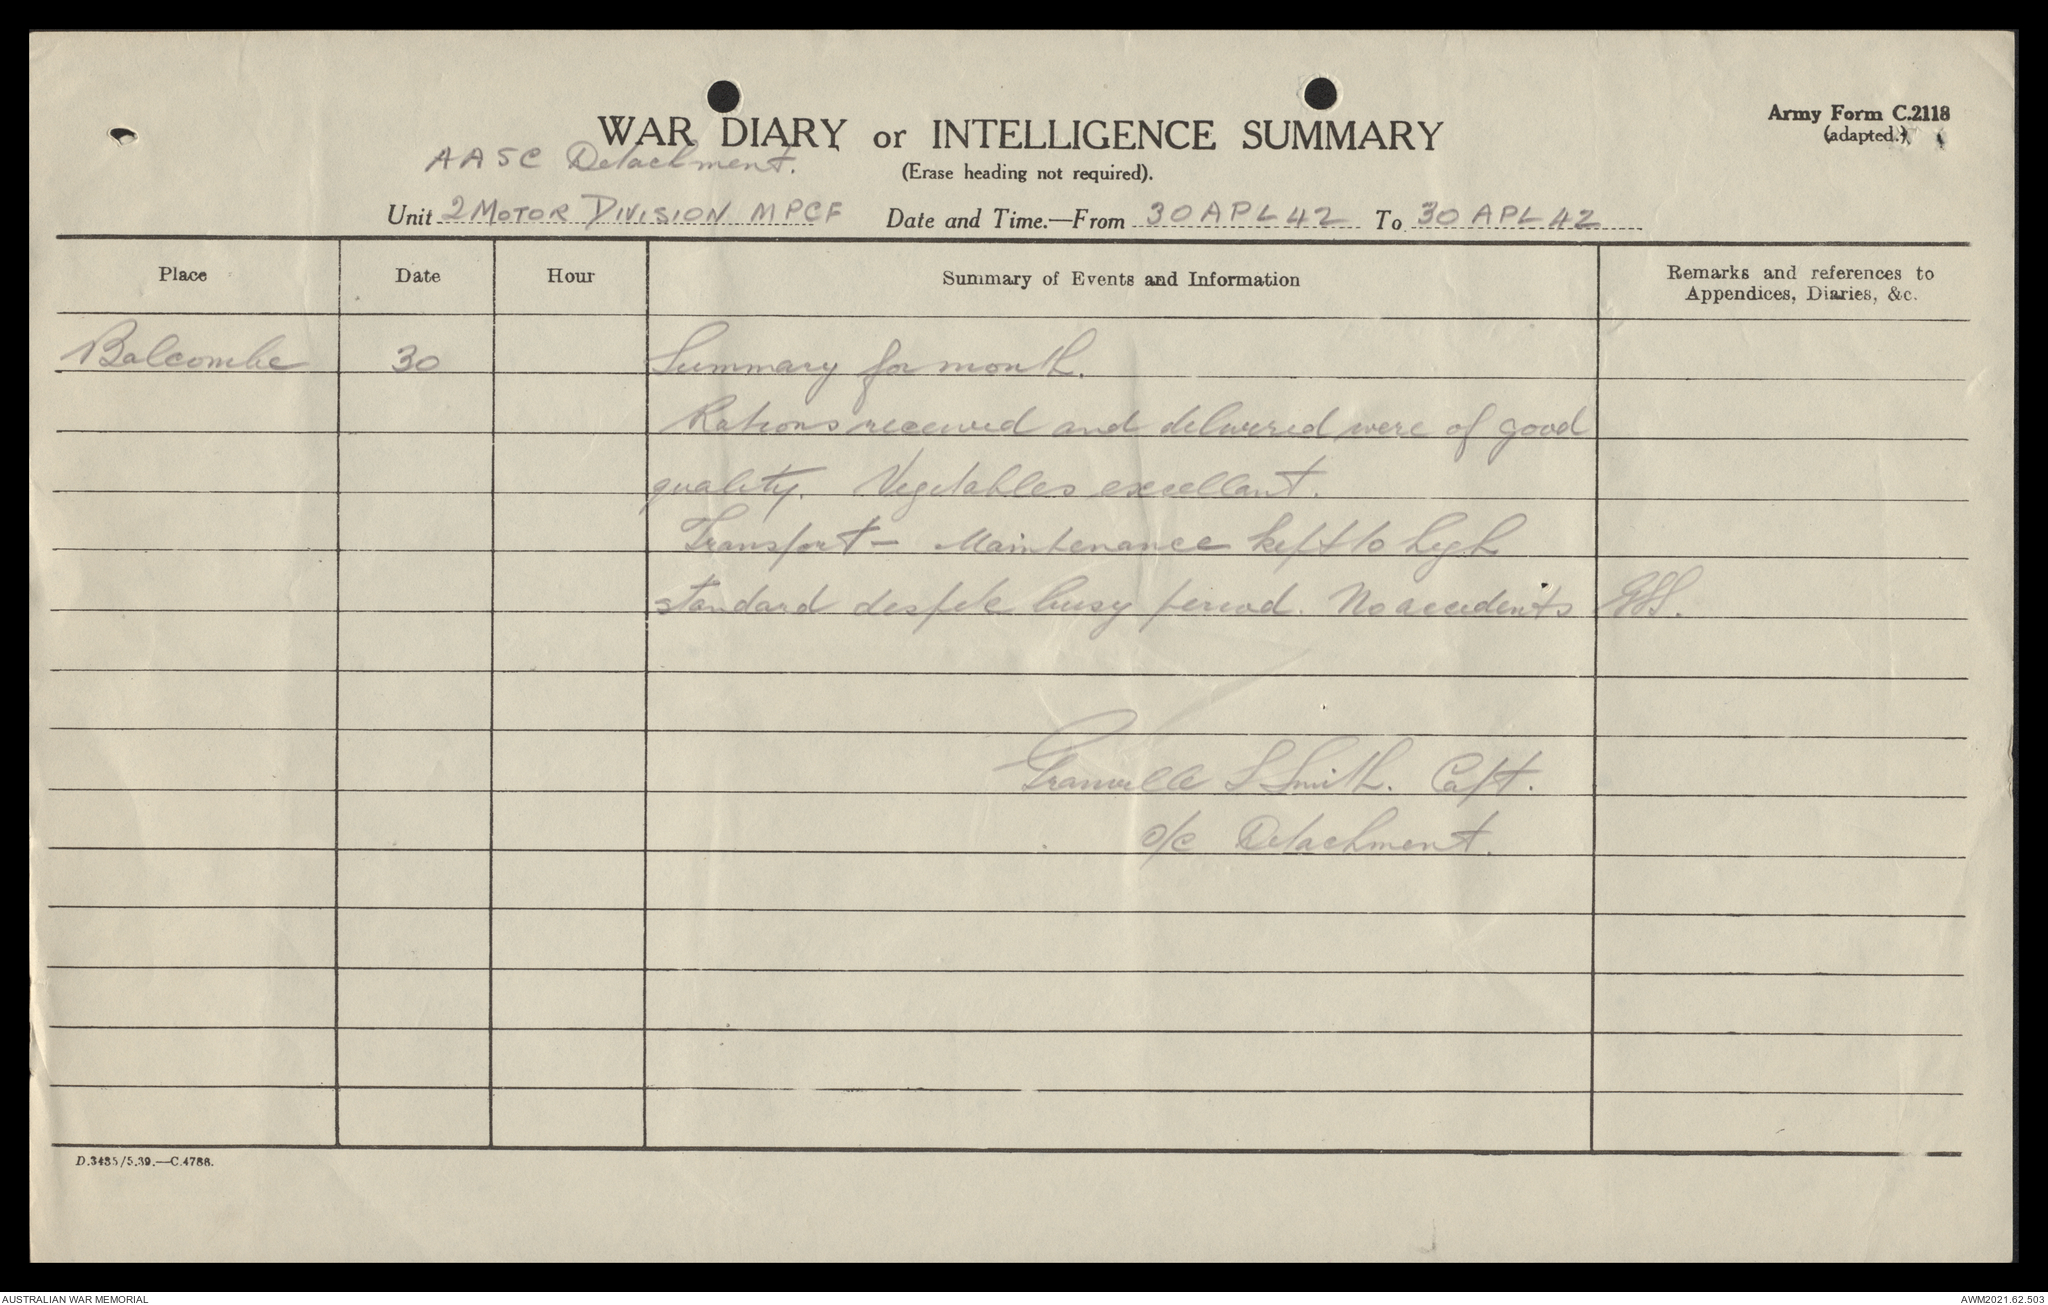 Army Form C.2118
(adapted.)
WAR DIARY or INTELLIGENCE SUMMARY
AASC Detachment.
(Erase heading not required).
Unit 2 MOTOR DIVISION MPCF Date and Time.—From 30 APL 42 To 30 APL 42
Place Date Hour Summary of Events and Information Remarks and references to
Appendices, Diaries, &c.
Balcombe 30 Summary for month.
Rations received and delivered were of good
quality. Vegetables excellant.
Transport - Maintenance kept to high
standard despite busy period. No accidents GSS.
Granville S Smith. Capt.
o/c Detachment.
D.3485/5.39.—C.4786.
AUSTRALIAN WAR MEMORIAL
AWM2021.62.503